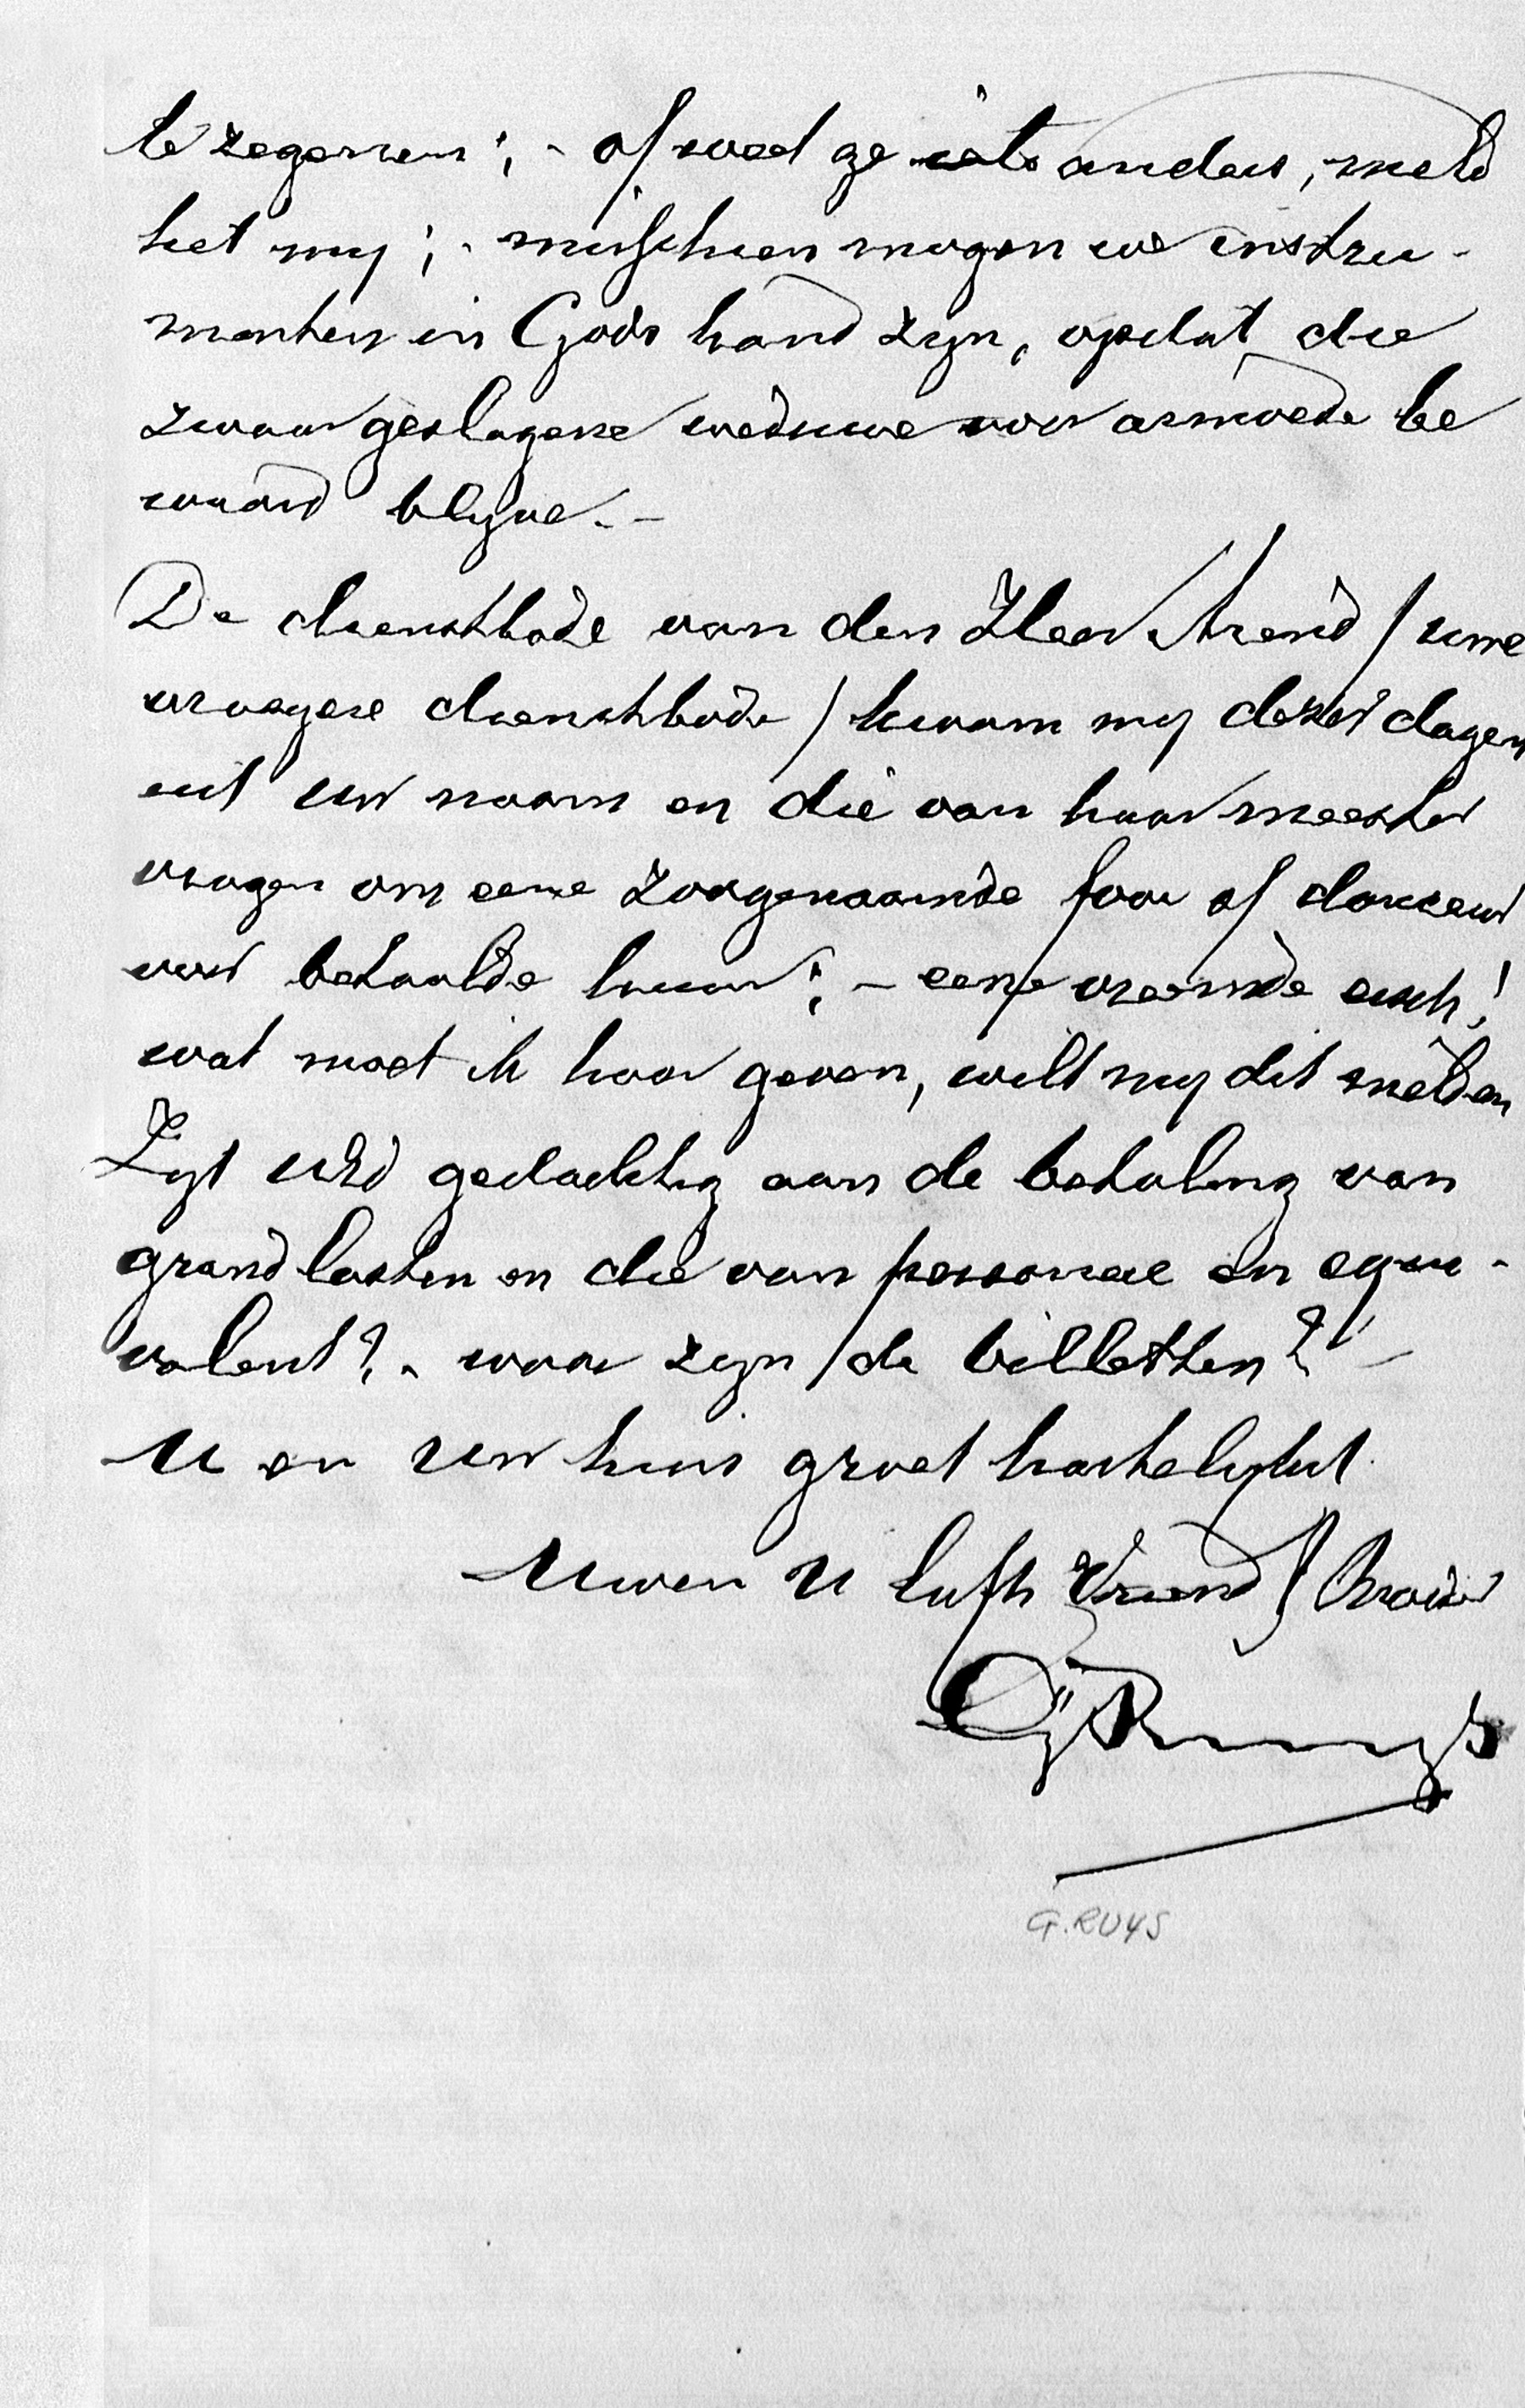 te zegenen; - of weet ge iets anders, meld
het my; - misschien mogen we instru-
menten in Gods hand zyn, opdat die
zwaar geslagene weduwe voor armoede be
waard blyve. -
De dienstbode van den Heer Arend / uwe
vroegere dienstbode / kwam my dezer dagen
uit uw naam en die van haar meester
vragen om eene zoogenaamde fooi of douceur
voor betaalde huur; - eene vreemde eisch!
wat moet ik haar geven, wilt my dit melden
Zyt UEd gedachtig aan de betaling van
grondlasten en die van personeel en equi-
valent? - waar zyn de billetten? -
U en uw huis groet hartelykst
Uwen u liefh Vriend / Broeder
GJRuys
G. RUYS